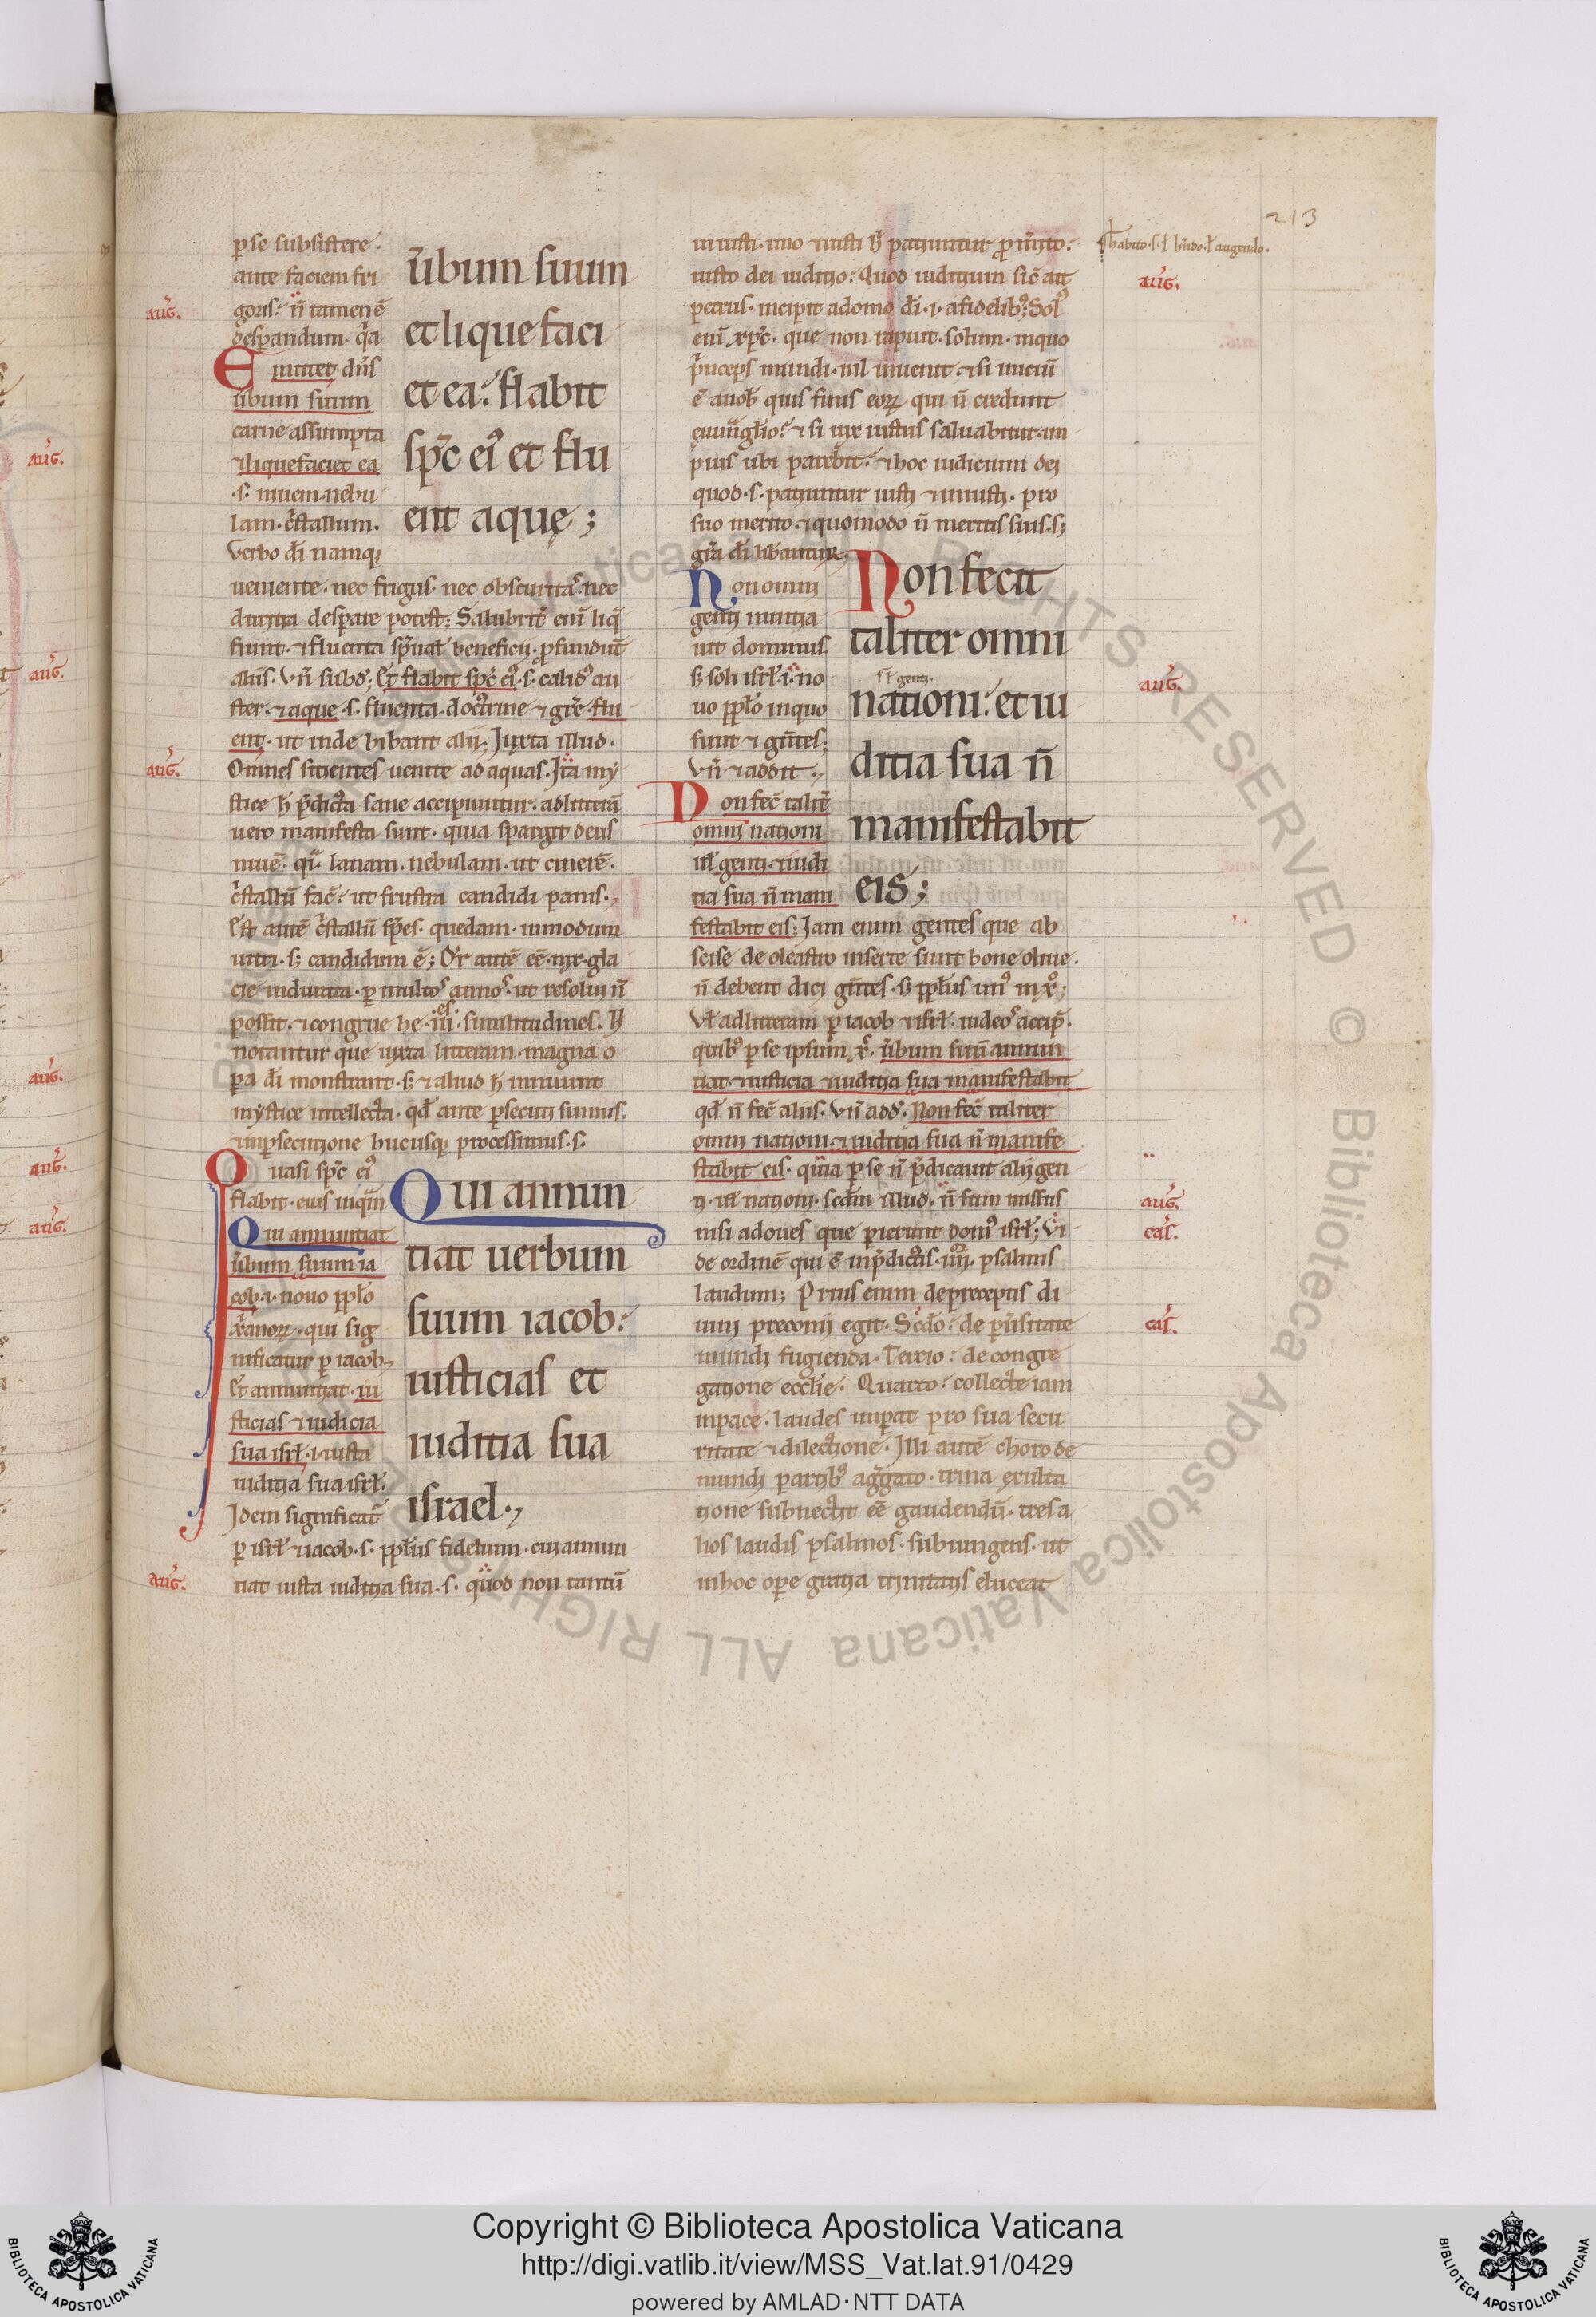 213
ꝑ se subsistere.
ante faciem fri
goris? n̄ tamen ē
desꝑandum. q̄a
Emittet dn̄s
ūbum suum
carne assumpta
⁊ liquefaciet ea
.s. niuem. nebu
lam. c̄stallum.
Verbo dī namq;
ūbum suum
et liquefaci
et ea: flabit
sp̄c ei᾽ et flu
ent aque;
ueniente. nec frigus. nec obscuritas. nec
duritia desꝑare potest; Salubrit̄ enī liq̄
fiunt. ⁊ fluenta sp̄uał beneficij. ꝓfundūt
aliis. Vn̄ subd᾽; Et flabit sp̄c ei᾽ .s. calid᾽ au
ster. ⁊ aque .s. fluenta. doct᾽ine ⁊ gr̄e. flu
ent. ut inde bibant alij; Juxta illud.
Omnes sitientes uenite ad aquas. Ita my
stice h̄ p̄dicta sane accipiuntur. ad litterā
uero manifesta sunt. quia spargit deus
niuē. q̄i lanam. nebulam. ut cinerē.
c̄stallū fac̄? ut frustra candidi panis.
Est autē c̄stallū sp̄es. quedam. in modum
uitri. s; candidum ē; Or̄ autē eē. nix. gla
cie indurata. ꝑ multos annos. ut resolui n̄
possit. ⁊ congrue he .iii. similitudines. h̄
notantur que iuxta litteram. magna o
ꝑa dī monstrant. s; ⁊ aliud h̄ innuunt
mystice intellecta. qd̄ ante ꝑsecuti sumus.
⁊ in ꝑsecutione hucusq; processimus .s.
Quasi sp̄c ei᾽
flabit. eius inq̄m
Qui annuntiat
ūbum suum ia
cob .i. nouo ppło
xr̄anorꝝ. qui sig
nificatur ꝑ iacob.
Et annuntiat. iu
sticias ⁊ iudicia
sua isrł .i. iusta
iuditia sua isrł.
Idem significat̄
Qui annun
tiat uerbum
suum iacob:
iusticias et
iuditia sua
israel.
ꝑ isrł ⁊ iacob .s. ppłus fidelium. cui annun
tiat iusta iuditia sua .s. quod non tantū
iniusti. imo ⁊ iusti h̄ patiuntur ꝓ m̄ito.
iusto dei iuditio: Quod iuditium sic̄ ait
petrus. incipit a domo dī .i. a fidelib᾽; Sol᾽
enī xp̄c. que non rapuit. soluit. in quo
p̄nceps mundi. nil inuenit. ⁊ si iniciū
ē a nob̄ quis finis eorꝝ qui n̄ credunt
euuanḡlio? ⁊ si uix iustus saluabitur. im
pius ubi parebit? ⁊ hoc iudicium dei
quod .s. patiuntur iusti ⁊ iniusti. pro
suo merito. ⁊ quomodo n̄ meritis suis. s;
gr̄a dī lib̄antur.
Non omni
genti nuntia
uit dominus.
s; soli isrł .i. no
uo ppło in quo
sunt ⁊ gn̄tes;
Vn̄ ⁊ addit.
Non fec̄ talit̄
omni nationi
uł genti. ⁊ iudi
tia sua n̄ mani
Non fecit
taliter omni
ł genti.
nationi: et iu
ditia sua n̄
manifestabit
eis;
festabit eis; Jam enim gentes que ab
scise de oleastro inserte sunt bone oliue.
n̄ debent dici gn̄tes. s; ppłus un᾽ in xp̄o;
Vł ad litteram ꝑ iacob ⁊ isrł. iudeos accip̄.
quib᾽ ꝑ se ipsum xp̄c. ūbum suū annun
tiat. ⁊ iusticia ⁊ iuditia sua manifestabit
qd̄ n̄ fec̄ aliis. Vn̄ add᾽. Non fec̄ taliter
omni nationi. ⁊ iuditia sua n̄ manife
stabit eis. quia ꝑ se n̄ p̄dicauit alij gen
ti. uł nationi. scd̄m illud. n̄ sum missus
nisi ad oues que perierunt dom᾽ isrł; Vi
de ordinē qui ē in p̄dictis .iiii. psalmis
laudum; Prius enim de preceptis di
uini preconij egit. Scd̄o: de ꝑuersitate
mundi fugienda. Tercio: de congre
gatione eccłie. Quarto: collecte iam
in pace. laudes imꝑat pro sua secu
ritate ⁊ dilectione. Illi autē choro de
mundi partib᾽ aggregato. trina exulta
tione subnectit eē gaudendū. tres a
lios laudis psalmos. subiungens. ut
in hoc oꝑe gratia trinitatis eluceat
auḡ.
auḡ.
auḡ.
auḡ.
auḡ.
auḡ.
cas̄.
cas̄.
auḡ.
auḡ.
auḡ.
auḡ.
auḡ.
Copyright © Biblioteca Apostolica Vaticana
http://digi.vatlib.it/view/MSS_Vat.lat.91/0429
powered by AMLAD·NTT DATA
BIBLIOTECA APOSTOLICA VATICANA
BIBLIOTECA APOSTOLICA VATICANA
© Biblioteca Apostolica Vaticana ALL RIGHTS RESERVED